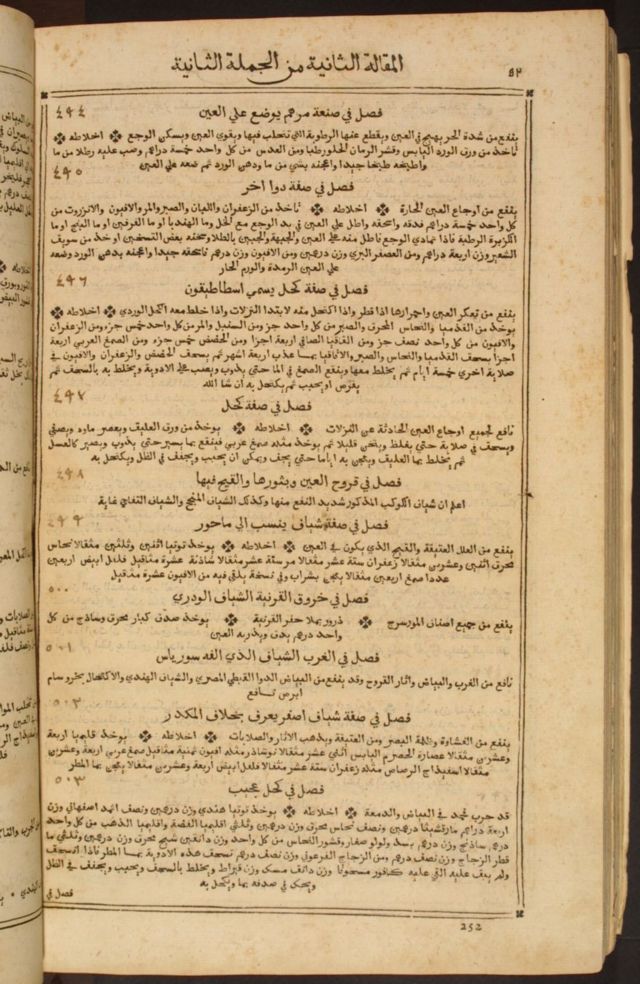 ٥٢
المقالة الثانية من الجملة الثانية
فصل في صنعة مرهم يوضع علي العين
ينفع من شدة الحر يهيج في العين ويقطع عنها الرطوبة التي تتحلب فيها ويقوي العين ويسكن الوجع ٭ اخلاطه ٭
تاخذ من ورق الورد اليابس وقشر الرمان الحلو رطبا ومن العدس من كل واحد خمسة دراهم وصب عليه رطلا من ما
واطبخه طبخا جيدا واعجنه بشي من ما ودهن الورد ثم ضعه علي العين
فصل في صفة دوا اخر
ينفع من اوجاع العين الحارة ٭ اخلاطه ٭ تاخذ من الزعفران واللبان والصبر والمر والافيون والانزروت من
كل واحد خمسة دراهم فدقه واسحقه واطل علي العين في بد الوجع مع الخل وما الهندبا او ما القرفين او ما البنج او ما
الكزبرة الرطبة فاذا تمادي الوجع فاطل منه علي العين والجبهة والجبين بالطلا وسخنه بعض التسخين او خذ من سويف
الشعير وزن اربعة دراهم ومن العصفر البري وزن درهمين ومن الافيون وزن درهم فاسحقه جيدا واعجنه بدهن الورد وضعه
علي العين الرمدة والورم الحار
فصل في صفة كحل يسمي اسطاطيقون
ينفع من تعكر العين واحمرارها اذا قطر واذا اكتحل منه لابتدا النزلات واذا خلط معه الكحل الوردي ٭ اخلاطه ٭
يوخذ من القدميا والنحاس المحرق والصبر من كل واحد جز ومن السنبل والمر من كل واحد خمس جزء ومن الزعفران
والافيون من كل واحد نصف جز ومن القاقيا الصافي اربعة اجزا ومن الحضض خمس جزه ومن الصمغ العربي اربعة
اجزا يسحق القدميا والنحاس والصبر والاقاقيا بما عذب اربعة اشهر ثم يسحق الحضض والزعفران والافيون في
صلاية اخري خمسة ايام ثم يخلط معها وينقع الصمغ في الما حتي يذوب ويصب علي الادوية ويخلط به بالسحق ثم
يقرص او يحبب ثم يكتحل به ان شا الله
فصل في صفة كحل
نافع لجميع اوجاع العين الحادثة عن النزلات ٭ اخلاطه ٭ يوخذ من ورق العليق ويعصر ماوه ويصفي
ويسحق في صلاية حتي يغلظ ويثخن قليلا ثم يوخذ مثله صمغ عربي فينقع بما يسير حتي يذوب ويصير كالعسل
ثم يخلط بما العليق ويعجن به اياما حتي يجف ويمكن ان يحبب ويجفف في الظل ويكتحل به
فصل في قروح العين وبثورها والقيح فيها
اعلم ان شياف الكوكب المذكور شديد النفع منها وكذلك الشياف المنجح والشياف التفاي غاية
فصل في صفة شياف ينسب الي ماحور
ينفع من العلل العتيقة والقيح الذي يكون في العين ٭ اخلاطه ٭ يوخذ توتيا اثنين وثلثين مثقالا نحاس
محرق اثنين وعشرين مثقالا زعفران ستة عشر مثقالا مر ستة عشر مثقالا شاذنة عشرة مثاقيل فلفل ابيض اربعين
عددا صمغ اربعين مثقالا يعجن بشراب وفي نسخة يلقي فيه من الافيون عشرة مثاقيل
فصل في خروق القرنية الشياف الوردي
ينفع من جميع اصناف المورسرج ٭ ذرور يملا حفر القرنية ٭ يوخذ صدف كبار محرق وساذج من كل
واحد درهم يدق ويذر به العين
فصل في الغرب الشياف الذي الفه سورياس
نافع من الغرب والبياض واثار القروح وقد ينفع من البياض الدوا القبطي المصري والشياف الهندي والاكتحال بخرو سام
ابرص نافع
فصل في صفة شياف اصفر يعرف بخلاف المكدر
ينفع من الغشاوة وظلمة البصر ومن العتيقة ويذهب الاثار والصلابات ٭ اخلاطه ٭ يوخذ قليميا اربعة
وعشرين مثقالا عصارة الحصرم اليابس اثني عشر مثقالا نوشاذر مثله افيون ثمنية مثاقيل صمغ عربي اربعة وعشرين
مثقالا اسفيداج الرصاص مثله زعفران ستة عشر مثقالا فلفل ابيض اربعة وعشرين مثقالا يعجن بما المطر
فصل في كحل عجيب
قد جرب فحمد في البياض والدمعة ٭ اخلاطه ٭ يوخذ توتيا هندي وزن درهمين ونصف اثمد اصفهاني وزن
اربعة دراهم مارقشيثا درهمين ونصف نحاس محرق وزن درهمين وثلثي اقليميا الفضة واقليميا الذهب من كل واحد
درهم ساذج وزن درهم بسد ولولو صغار وقشور النحاس من كل واحد وزن دانقين شيح محرق وزن درهمين وثلثي ما
قطر الزجاج وزن نصف درهم ومن الزجاج الفرعوني وزن نصف درهم تسحق هذه الادوية بما المطر فاذا انسحق
ولم يبق عليه القي عليه كافور مسحوقا وزن دانق مسك وزن قيراط ويخلط بالسحق ويحبب ويجفف في الظل
ويحك في صدفة بما ويكحل به
فصل في
252
٤٩٤
٤٩٥
٤٩٦
٤٩٧
٤٩٨
٤٩٩
٥٠٠
٥٠١
٥٠٢
٥٠٣